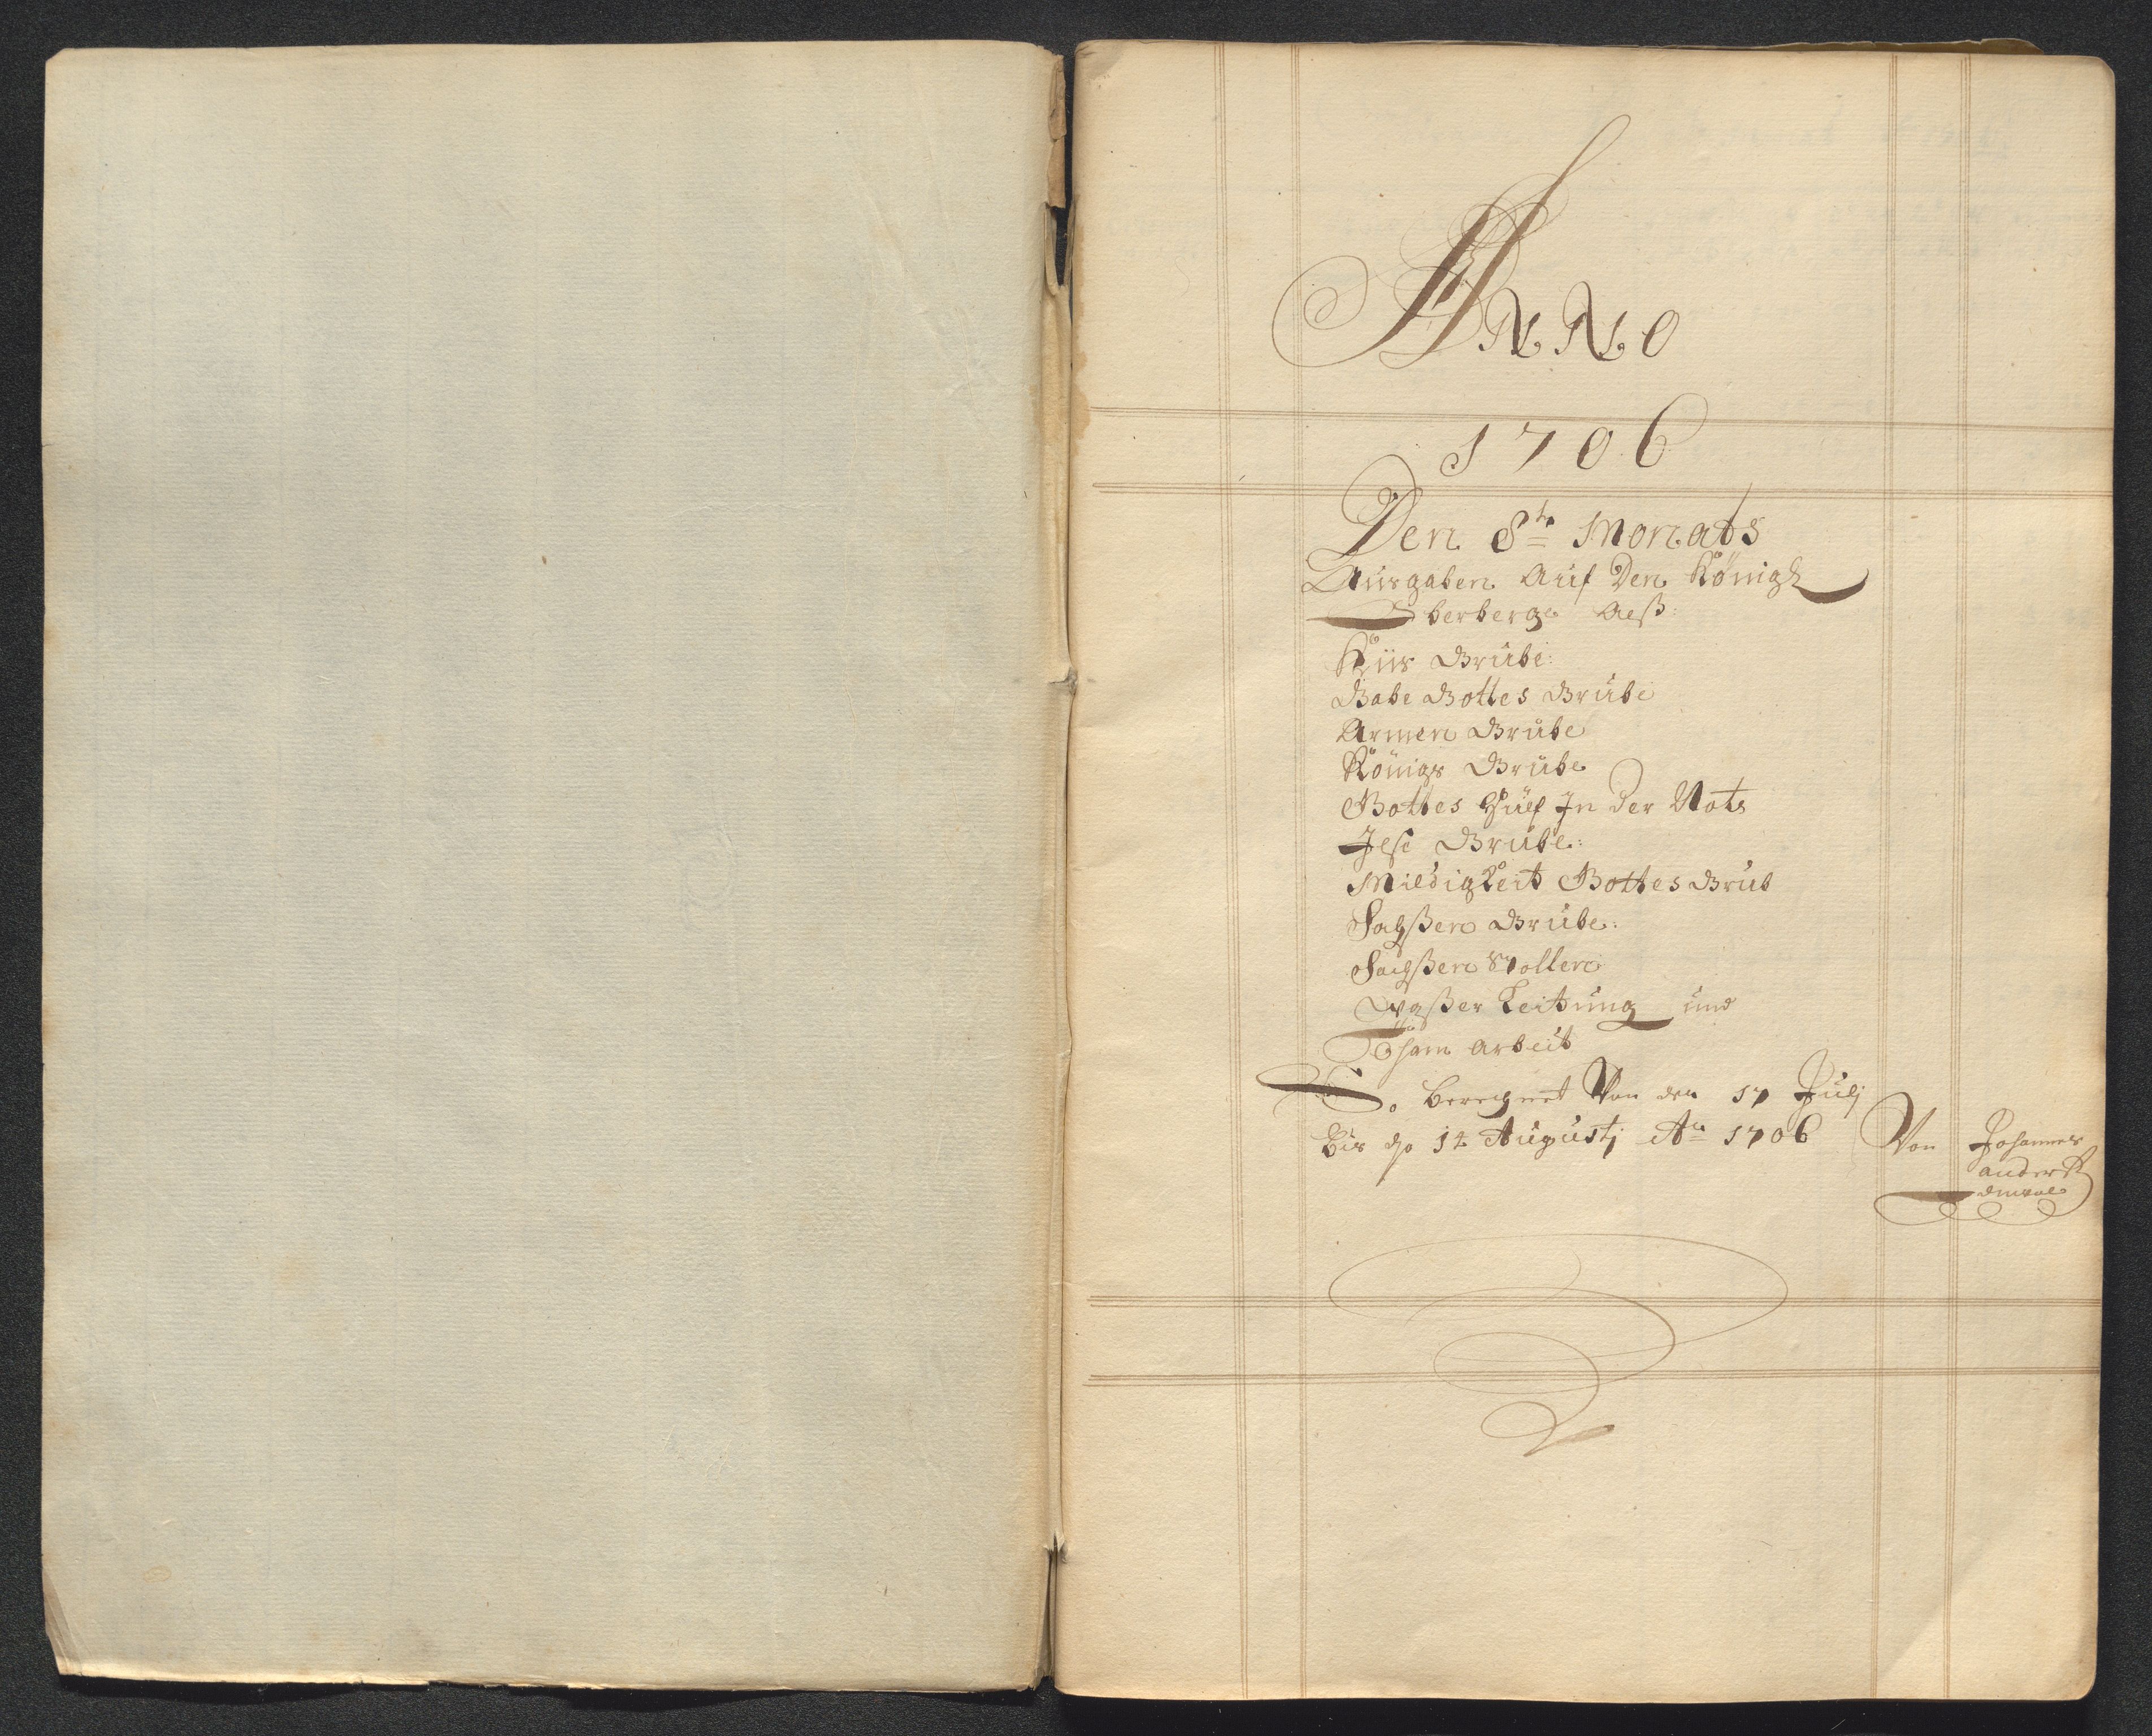 ANNO
1706
Den 8te Monats
Ausgaben Auf Den Königl
Sberberge Alß:
Hüs Grube:
Gabe Gottes Grube
Armen Grube
Königs Grube
Gottes Hülf In der Noht
Grube:
Mildigkeit Gottes Grub
Sachßen Grube:
Sachßen Stollen
Waßer Leitung und
Arbeit
So berechnet Von den 17 Julj
bis d 14 Augustj Ao 1706 Von Johannes
Anders